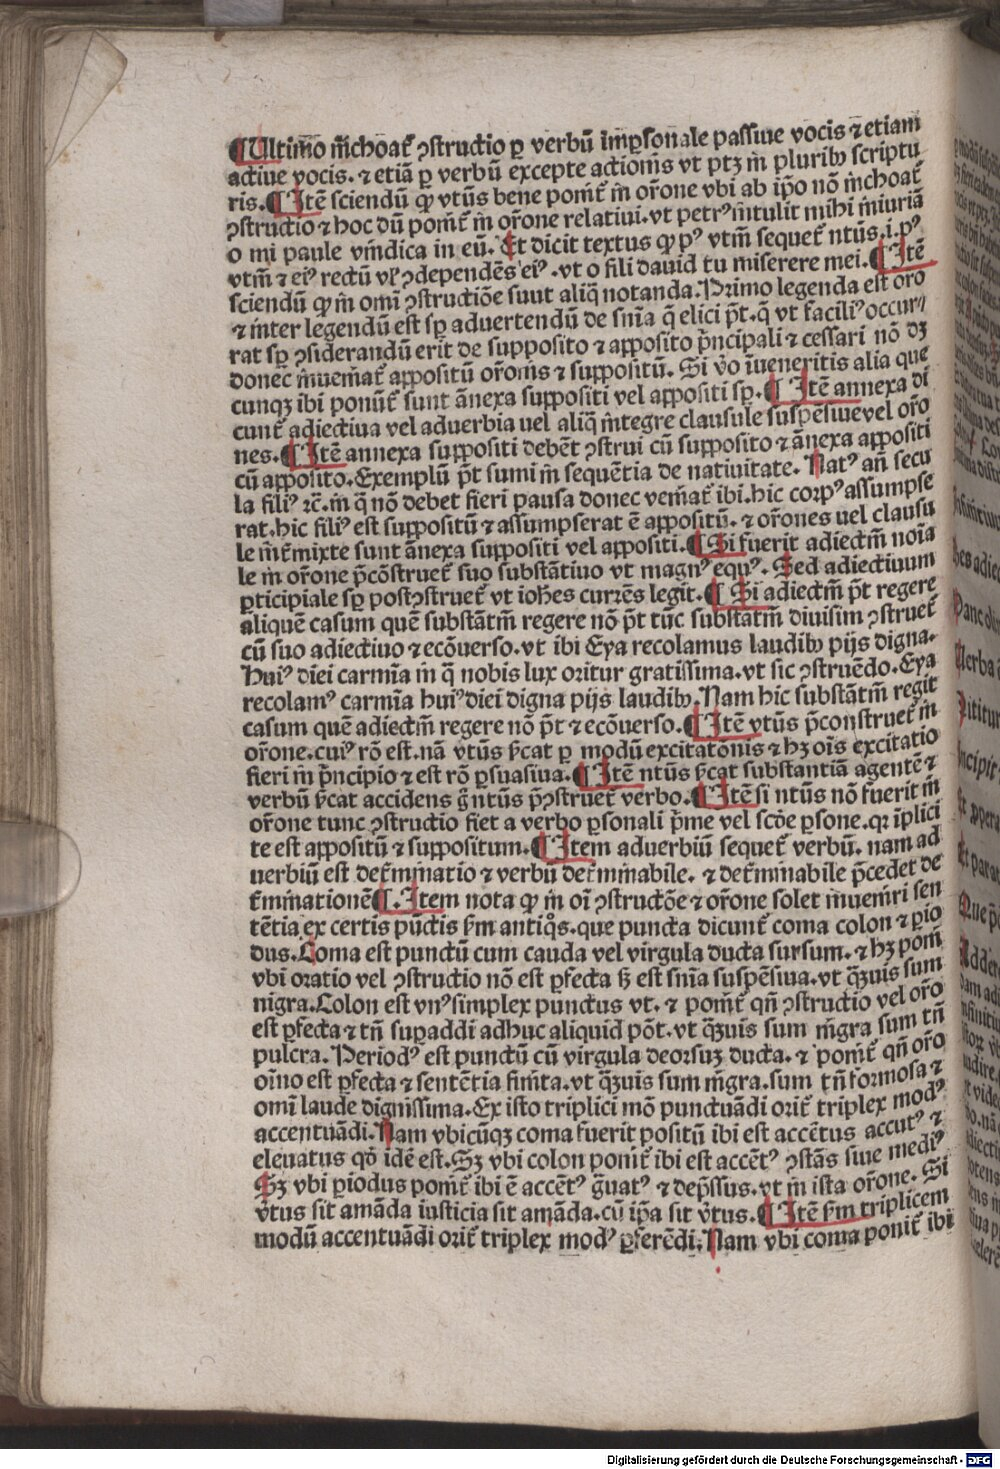 ¶Ultimo m̄choat᷑ ꝯstructio ꝑ verbū imꝑsonale passiue vocis ⁊ etiam
actiue vocis. ⁊ etiā ꝑ verbū excepte actiom̄s vt ptꝫ in pluribꝰ scriptu
ris. ¶Itē sciendū ꝙ vtūs bene ponit᷑ in or̄one vbi ab ip̄o nō inchoat᷑
ꝯstructio ⁊ hoc dū ponit᷑ in or̄one relatiui. vt petrꝰ intulit mihi iniuriā
o mi paule vindica in eū. Et dicit textus ꝙ pꝰ vtm̄ sequet᷑ ntūs .i. pꝰ
vtm̄ ⁊ eiꝰ rectū vl̓ ꝯdependēs eiꝰ. vt o fili dauid tu miserere mei. ¶Itē
sciendū ꝙ in omni ꝯstructiōe sunt aliq̄ notanda. Primo legenda est oro
⁊ inter legendū est sꝑ aduertendū de sn̄ia q̄ elici p̄t. q̄ vt faciliꝰ occur⸗
rat sꝑ ꝯsiderandū erit de supposito ⁊ apposito p̄ncipali ⁊ cessari nō dꝫ
donec inueniat᷑ appositū or̄onis ⁊ suppositū. Si v̓o īueneritis alia que
cunqꝫ ibi ponūt᷑ sunt ānexa suppositi vel appositi sꝑ. ¶Itē annexa di
cunt᷑ adiectiua vel aduerbia uel aliq̄ integre clausule suspēsiue vel or̄o
nes. ¶Itē annexa suppositi debēt ꝯstrui cū supposito ⁊ ānexa appositi
cū apposito. Exemplū p̄t sumi in sequētia de natiuitate. Natꝰ an̄ secu
la filiꝰ ⁊c̄. in q̄ nō debet fieri pausa donec veniat᷑ ibi. hic corpꝰ assumpse
rat. hic filiꝰ est suppositū ⁊ assumpserat ē appositū. ⁊ or̄ones uel clausu
le int᷑mixte sunt ānexa suppositi vel appositi. ¶Si fuerit adiectm̄ noīa
le in or̄one p̄cōstruet᷑ suo substātiuo vt magnꝰ equꝰ. Sed adiectiuum
ꝑticipiale sꝑ postꝯstruet᷑ vt ioh̄es currēs legit. ¶Si adiectm̄ p̄t regere
aliquē casum quē substātm̄ regere nō p̄t tūc substātm̄ diuisim ꝯstruet᷑
cū suo adiectiuo ⁊ ecōuerso. vt ibi Eya recolamus laudibꝰ pijs digna.
Huiꝰ diei carmīa in q̄ nobis lux oritur gratissima. vt sic ꝯstruēdo. Eya
recolamꝰ carmīa huiꝰ diei digna pijs laudibꝰ. Nam hic substātm̄ regit
casum quē adiectm̄ regere nō p̄t ⁊ ecōuerso. ¶Itē vtūs p̄construet᷑ in
or̄one. cuiꝰ rō est. nā vtūs s̄cat ꝑ modū excitatōnis ⁊ hꝫ oīs excitatio
fieri in p̄ncipio ⁊ est rō ꝑsuasiua. ¶Itē ntūs s̄cat substantiā agentē ⁊
verbū s̄cat accidens g̊ ntūs p̄ꝯstruet᷑ verbo. ¶Itē si ntūs nō fuerit in
or̄one tunc ꝯstructio fiet a verbo ꝑsonali p̄me vel scd̄e ꝑsone. qꝛ īplici
te est appositū ⁊ suppositum. ¶Item aduerbiū sequet᷑ verbū. nam ad
uerbiū est det᷑minatio ⁊ verbū det᷑minabile. ⁊ det᷑minabile p̄cedet de
t᷑minationē ¶Item nota ꝙ in oī ꝯstructōe ⁊ or̄one solet inueniri sen
tētia ex certis pūctis s̄m antiq̊s. que puncta dicunt᷑ coma colon ⁊ ꝑio
dus. Coma est punctū cum cauda vel virgula ducta sursum. ⁊ hꝫ poni
vbi oratio vel ꝯstructio nō est ꝑfecta sꝫ est sn̄ia suspēsiua. vt q̄ꝫuis sum
nigra. Colon est vnꝰ simplex punctus vt. ⁊ ponit᷑ qn̄ ꝯstructio vel or̄o
est ꝑfecta ⁊ tn̄ suꝑaddi adhuc aliquid pōt. vt q̄ꝫuis sum nigra sum tn̄
pulcra. Periodꝰ est punctū cū virgula deorsuꝫ ducta. ⁊ ponit᷑ qn̄ or̄o
oīno est ꝑfecta ⁊ sentētia finita. vt q̄ꝫuis sum nigra. sum tn̄ formosa ⁊
omī laude dignissima. Ex isto triplici mō punctuādi orit᷑ triplex modꝰ
accentuādi. Nam vbicūqꝫ coma fuerit positū ibi est accētus accutꝰ ⁊
eleuatus qd̓ idē est. Sꝫ vbi colon ponit᷑ ibi est accētꝰ ꝯstās siue mediꝰ
Sꝫ vbi ꝑiodus ponit᷑ ibi ē accētꝰ g̊uatꝰ ⁊ dep̄ssus. vt in ista or̄one. Si
v̓tus sit amāda iusticia sit amāda. cū ip̄a sit v̓tus. ¶Itē s̄m triplicem
modū accentuādi orit᷑ triplex modꝰ ꝓferēdi. Nam vbi coma ponit᷑ ibi
Digitalisierung gefördert durch die Deutsche Forschungsgemeinschaft - DFG